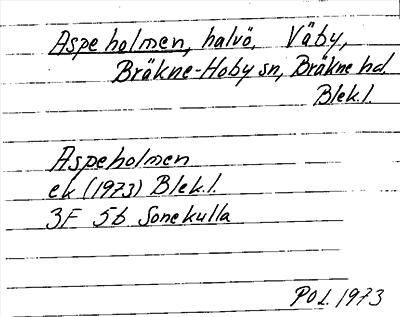 Aspeholmen, halvö, Väby,
Bräkne-Hoby sn, Bräkne hd.
Blek.l.
Aspeholmen
ek (1973) Blek.l.
3F 5b Sonekulla
POL 1973